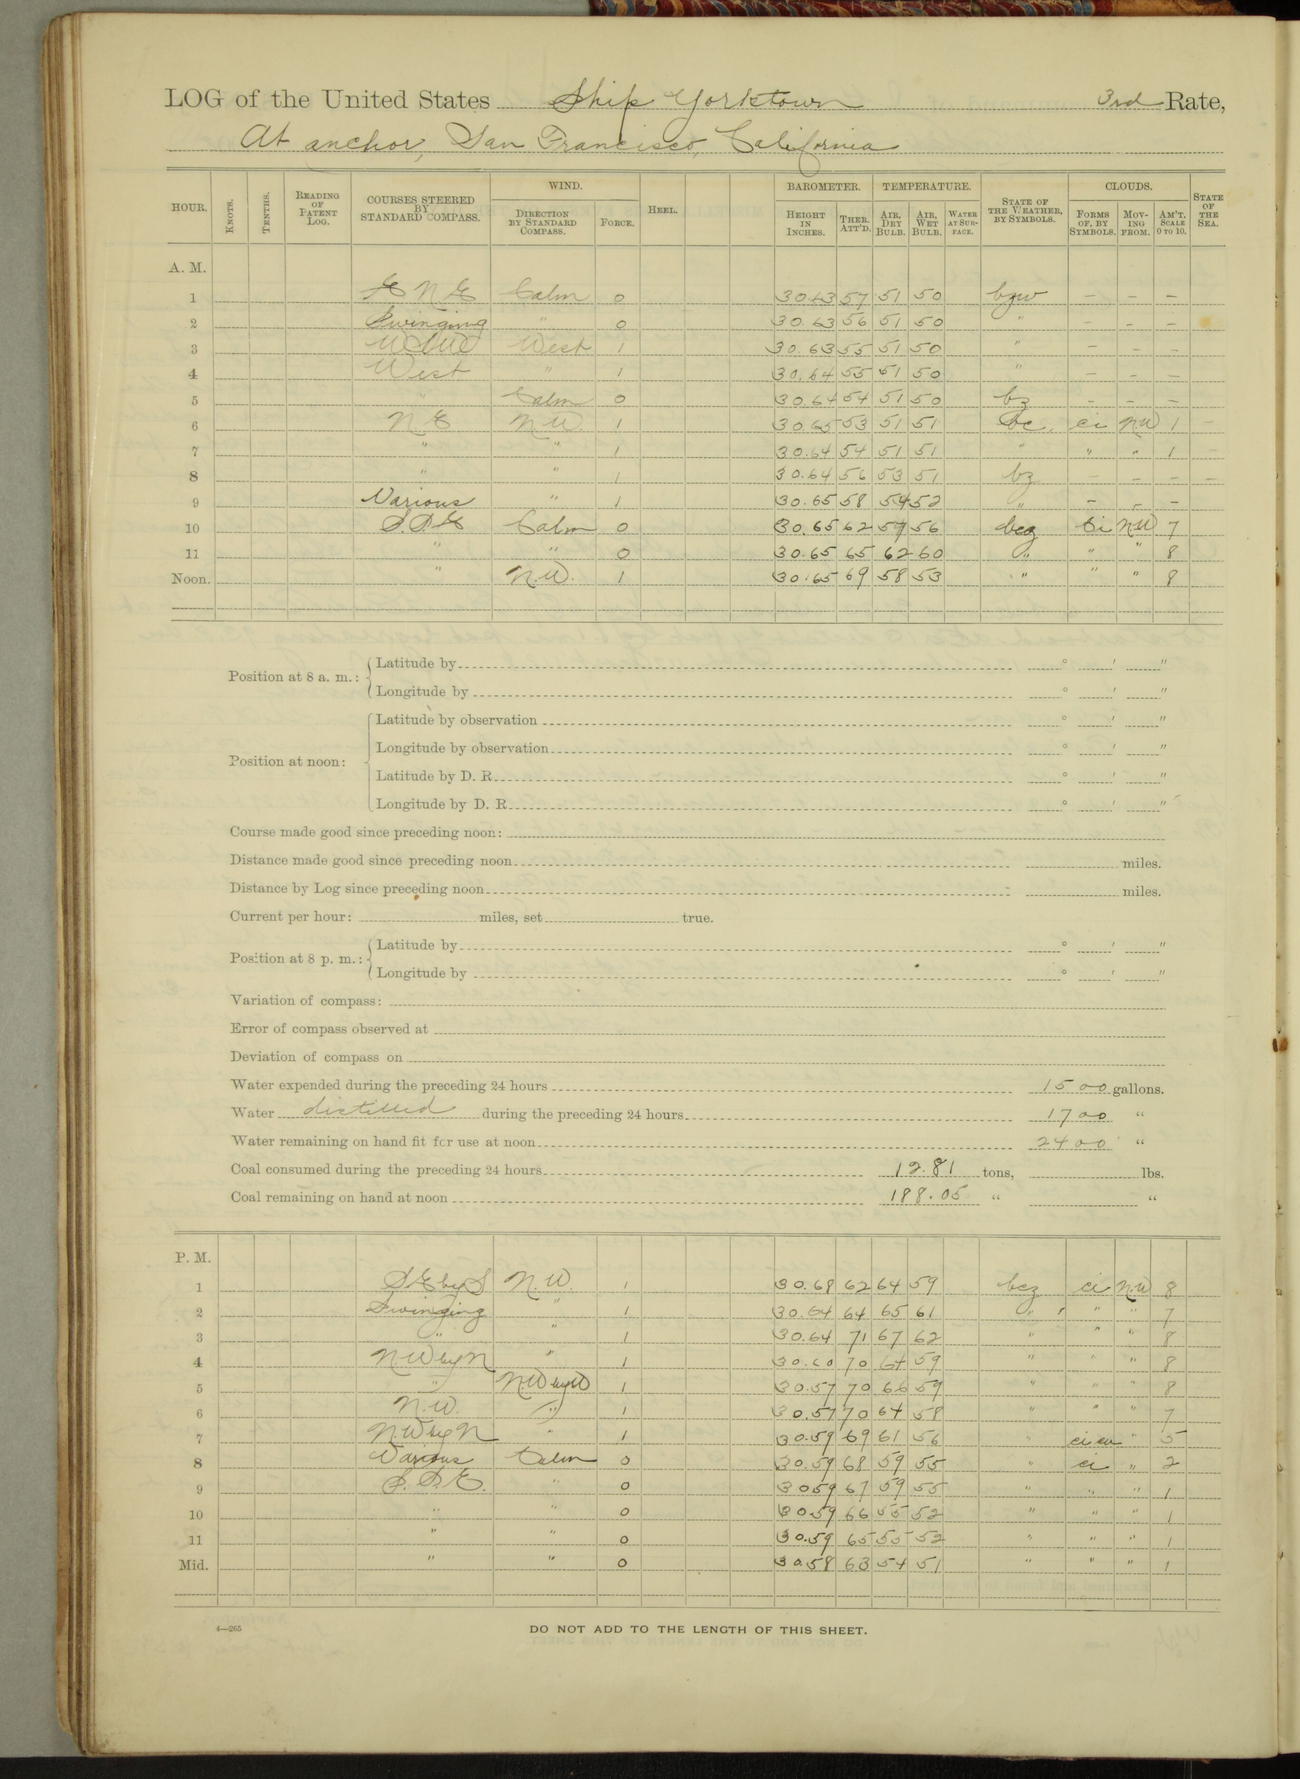 LOG of the United States Ship Yorktown 3rd Rate,
At anchor, San Francisco, California
HOUR. KNOTS. TENTHS. READING OF PATENT LOG. COURSES STEERED BY STANDARD COMPASS. WIND. DIRECTION BY STANDARD COMPASS. FORCE. HEEL. BAROMETER. HEIGHT IN INCHES. THER. ATT'D. TEMPERATURE. AIR, DRY BULB. AIR, WET BULB. WATER AT SURFACE. STATE OF THE WEATHER, BY SYMBOLS. CLOUDS. FORMS OF, BY SYMBOLS. MOVING FROM. AM'T, SCALE 0 TO 10. STATE OF THE SEA.
A. M.
1 E N E Calm 0 30.63 57 51 50 bzw – – –
2 Swinging " 0 30.63 56 51 50 " – – –
3 WSW West 1 30.63 55 51 50 " – – –
4 West " 1 30.64 55 51 50 " – – –
5 " Calm 0 30.64 54 51 50 bz – – –
6 N E N.W. 1 30.65 53 51 51 bc. ci NW 1 –
7 " " 1 30.64 54 51 51 " " " 1 –
8 " " 1 30.64 56 53 51 bz – – – –
9 Various " 1 30.65 58 54 52 " – – –
10 S.S.E Calm 0 30.65 62 59 56 bcz Ci NW 7
11 " " 0 30.65 65 62 60 " " " 8
Noon. " N.W. 1 30.65 69 58 53 " " " 8
Position at 8 a. m.: Latitude by ° ' "
Longitude by ° ' "
Position at noon: Latitude by observation ° ' "
Longitude by observation ° ' "
Latitude by D. R. ° ' "
Longitude by D. R. ° ' "
Course made good since preceding noon:
Distance made good since preceding noon miles.
Distance by Log since preceding noon miles.
Current per hour: miles, set true.
Position at 8 p. m.: Latitude by ° ' "
Longitude by ° ' "
Variation of compass:
Error of compass observed at
Deviation of compass on
Water expended during the preceding 24 hours 1500 gallons.
Water distilled during the preceding 24 hours 1700 "
Water remaining on hand fit for use at noon 2400 "
Coal consumed during the preceding 24 hours 12.81 tons, lbs.
Coal remaining on hand at noon 188.05 " "
P. M.
1 SE by S N.W. 1 30.68 62 64 59 bcz ci NW 8
2 Swinging " 1 30.64 64 65 61 " " " 7
3 " " 1 30.64 71 67 62 " " " 8
4 NW by N " 1 30.60 70 64 59 " " " 8
5 " N.W by W 1 30.57 70 66 59 " " " 8
6 N.W. " 1 30.57 70 64 58 " " " 7
7 N.W by N " 1 30.59 69 61 56 " ci cu " 5
8 Various Calm 0 30.59 68 59 55 " ci " 2
9 S.S.E. " 0 30 59 67 59 55 " " " 1
10 " " 0 30.59 66 55 52 " " " 1
11 " " 0 30.59 65 55 52 " " " 1
Mid. " " 0 30.58 63 54 51 " " " 1
4—265
DO NOT ADD TO THE LENGTH OF THIS SHEET.